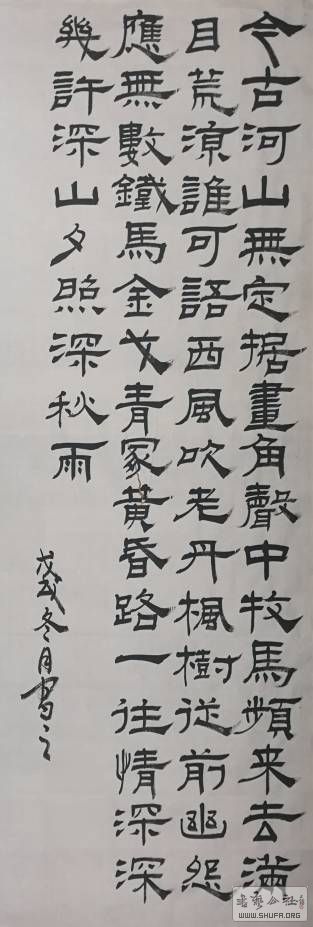 今古河山無定据畫角聲中牧馬頻来去滿
目荒涼誰可語西風吹老丹楓樹從前幽怨
應無數鐵馬金戈青冢黃昏路一往情深深
幾許深山夕照深秋雨
戊戌冬月書之
WWW.SHUFA.ORG